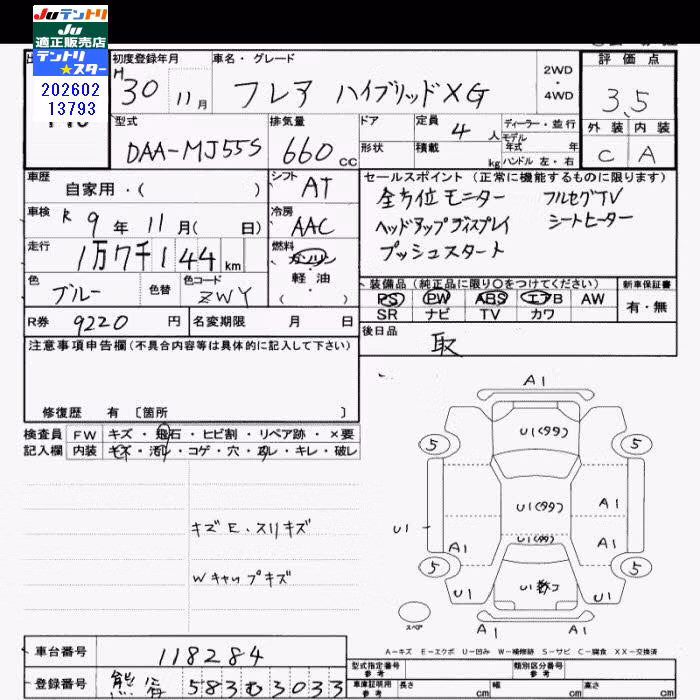 JUテントリ
JU
適正販売店
テントリ
★スター
202602
13793
初度登録年月
H30 11月
車名・グレード
フレア ハイブリッドXG
2WD・4WD
評価点
3.5
外装 内装
C A
型式
DAA-MJ55S
排気量
660 CC
ドア
形状
定員 4人
積載 kg
ディーラー・並行
モデル年式 年
ハンドル 左・右
車歴
自家用・( )
シフト
AT
車検
R 9年 11月( 日)
冷房
AAC
走行
1万7千144 km
燃料
ガソリン
軽油
( )
色
ブルー
色替
色コード
ZWY
R券 9220円
名変期限 月 日
セールスポイント(正常に機能するものに限ります)
全方位モニター フルセグTV
ヘッドアップディスプレイ シートヒーター
プッシュスタート
装備品(純正品に限り○をつけてください)
PS PW ABS エアB AW
SR ナビ TV カワ
新車保証書
有・無
後日品
取
注意事項申告欄(不具合内容等は具体的に記入して下さい)
修復歴 有 〔箇所 〕
検査員 FW キズ・飛石・ヒビ割・リペア跡・×要
記入欄 内装 キズ・汚レ・コゲ・穴・スレ・キレ・破レ
キズE.スリキズ
Wキャップキズ
A1
U1(99)
5 5
U1(99)
A1
U1
U1(99)
A1 A1
5 5
U1
U1
スペア
A1 A1
A-キズ E-エクボ U-凹み W-補修跡 S-サビ C-腐食 XX-交換済
車台番号 118284
登録番号 583む3033
型式指定番号
参考
類別区分番号
参考
車庫証明用
参考
長さ cm
幅 cm
高さ cm